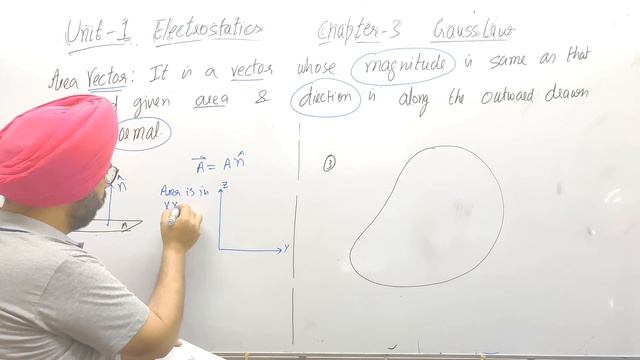 Unit-1 Electrostatics Chapter-3 Gauss Law
Area Vector: It is a vector whose magnitude is same as that
given area & direction is along the outward drawn
ormal.
A⃗ = A n̂
③
n̂
A
Area is in
YX
Z
Y